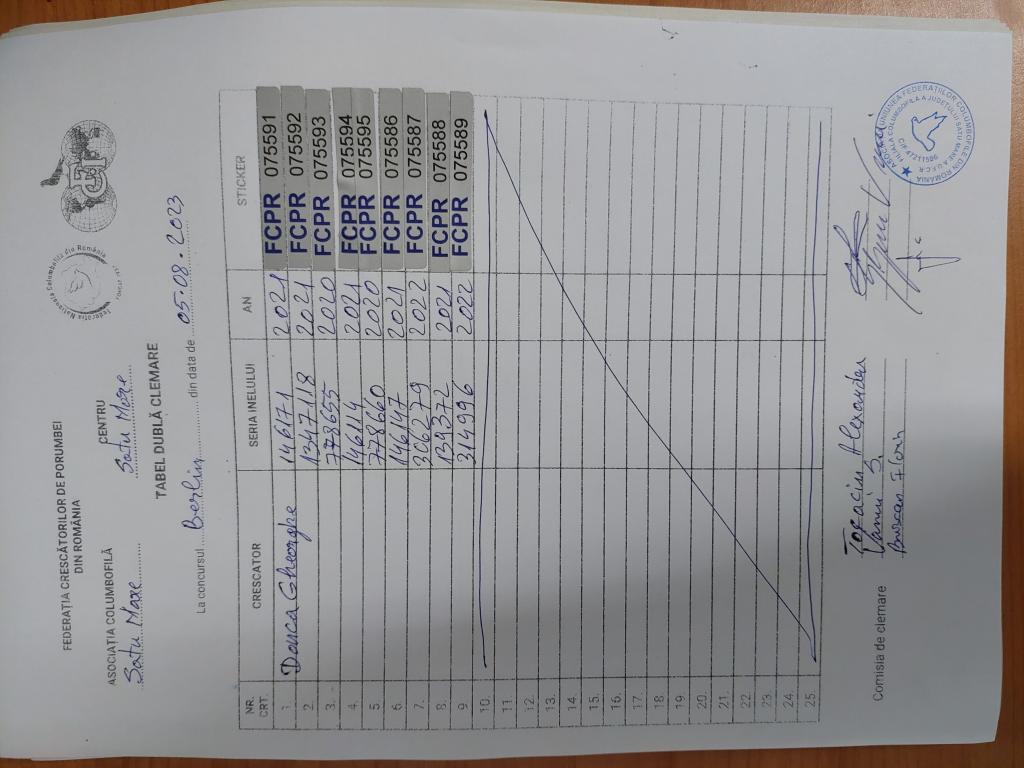 FEDERAȚIA CRESCĂTORILOR DE PORUMBEI
DIN ROMÂNIA
Federația Națională Columbofilă din România
FCPR
ASOCIAȚIA COLUMBOFILĂ
Satu Mare
CENTRU
Satu Mare
TABEL DUBLĂ CLEMARE
La concursul Berlin din data de 05.08.2023
NR. CRT. CRESCATOR SERIA INELULUI AN STICKER
1. Danca Gheorghe 146171 2021 FCPR 075591
2. 1347118 2021 FCPR 075592
3. 778655 2020 FCPR 075593
4. 146114 2021 FCPR 075594
5. 778660 2020 FCPR 075595
6. 146147 2021 FCPR 075586
7. 306279 2022 FCPR 075587
8. 139372 2021 FCPR 075588
9. 314996 2022 FCPR 075589
10.
11.
12.
13.
14.
15.
16.
17.
18.
19.
20.
21.
22.
23.
24.
25.
Comisia de clemare
Alexandru
Florin
UNIUNEA FEDERAȚIILOR COLUMBOFILE DIN ROMÂNIA
FILIALA COLUMBOFILA A JUDETULUI SATU MARE A U.F.C.R.
CIF 47211586